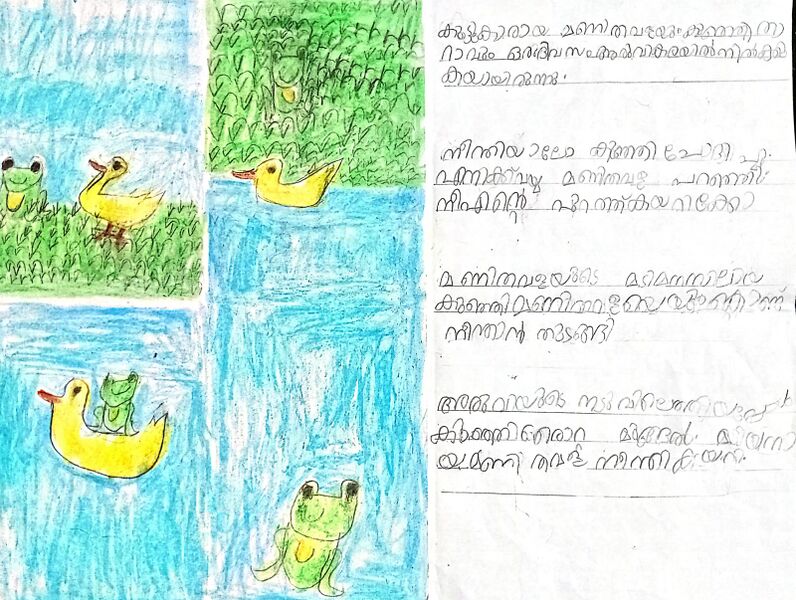 കൂട്ടുകാരായ മണിതവളയും കുഞ്ഞി താ
റാവും ഒരു ദിവസം അരുവിക്കരയിൽ നിൽക്കു
കയായിരുന്നു.
നീന്തിയാലോ കുഞ്ഞി ചോദിച്ചു.
എനിക്ക് വയ്യ മണിതവള പറഞ്ഞു.
നീ എന്റെ പുറത്ത് കയറിക്കോ
മണിതവളയുടെ മടി മനസിലായ
കുഞ്ഞി മണിതവളയെയും കൊണ്ട്
നീന്താൻ തുടങ്ങി
അരുവിയുടെ നടുവിലെത്തിയപ്പോൾ
കുഞ്ഞി ഒരൊറ്റ മുങ്ങൽ. മടിയനാ
യ മണി തവള നീന്തി കയറി.